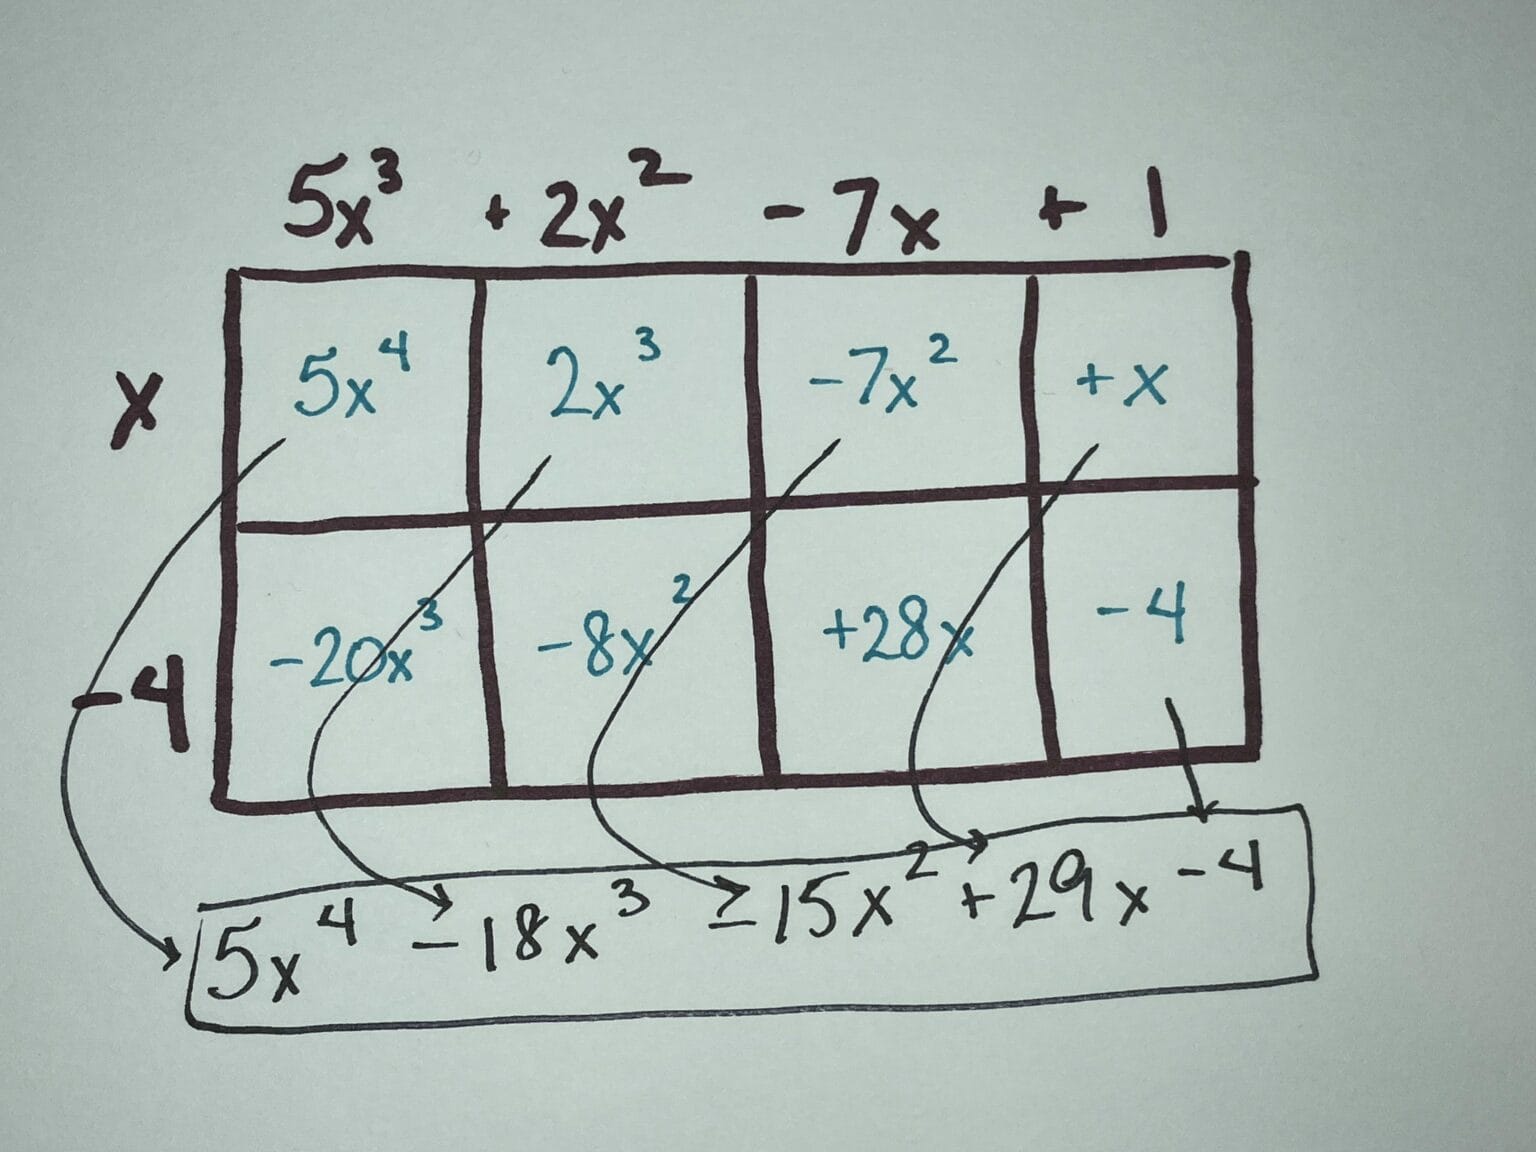 5x³ + 2x² - 7x + 1
x 5x⁴ 2x³ -7x² +x
-4 -20x³ -8x² +28x -4
5x⁴ -18x³ -15x² +29x -4